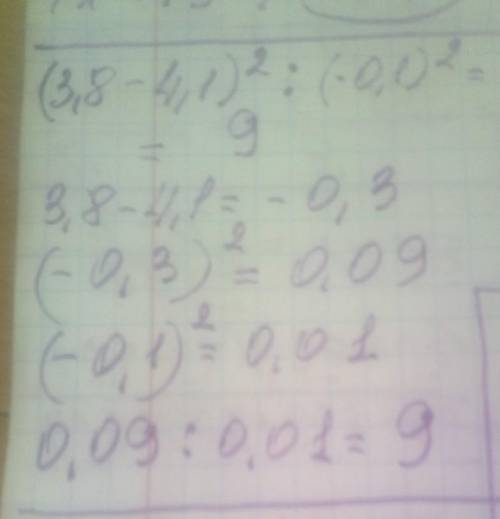 (3,8-4,1)² : (-0,1)² =
= 9
3,8-4,1 = -0,3
(-0,3)² = 0,09
(-0,1)² = 0,01
0,09 : 0,01 = 9